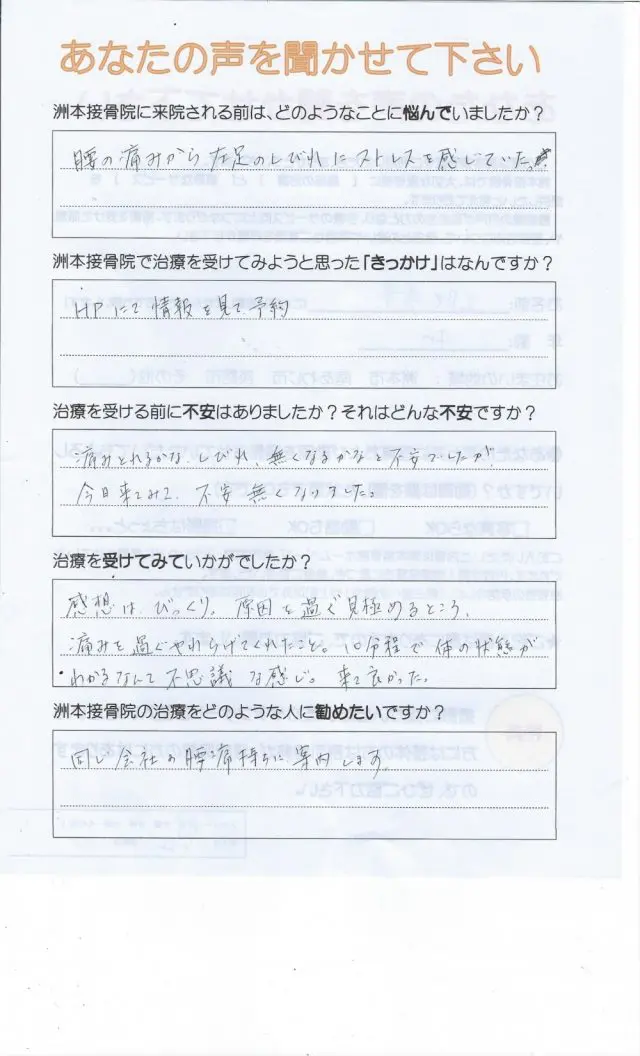 あなたの声を聞かせて下さい
洲本接骨院に来院される前は、どのようなことに悩んでいましたか？
腰の痛みから左足のしびれにストレスを感じていた。
洲本接骨院で治療を受けてみようと思った「きっかけ」はなんですか？
HPにて情報を見て予約
治療を受ける前に不安はありましたか？それはどんな不安ですか？
痛みとれるかな、しびれ、無くなるかなと不安でしたが
今日来てみて、不安無くなりました。
治療を受けてみていかがでしたか？
感想は、びっくり。原因を直ぐ見極めるところ、
痛みを直ぐやわらげてくれたこと。10分程で体の状態が
わかるなんて不思議な感じ。来て良かった。
洲本接骨院の治療をどのような人に勧めたいですか？
同じ会社の腰痛持ちに案内します。